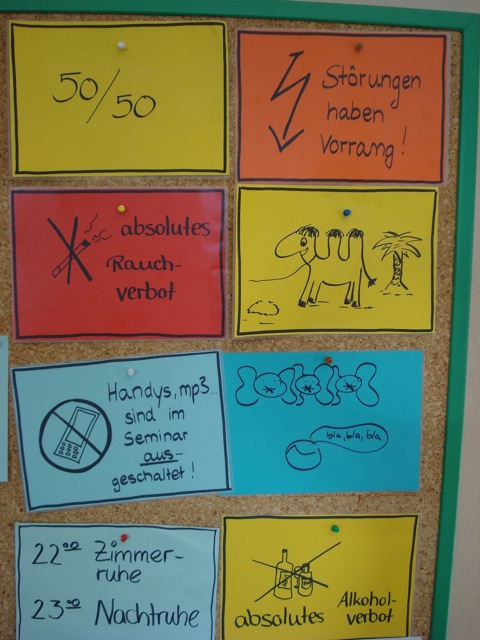 50/50
Störungen
haben
Vorrang!
absolutes
Rauch-
verbot
Handys, mp3...
sind im
Seminar
aus-
geschaltet!
bla, bla, bla
22⁰⁰ Zimmer-
ruhe
23⁰⁰ Nachtruhe
absolutes Alkohol-
verbot